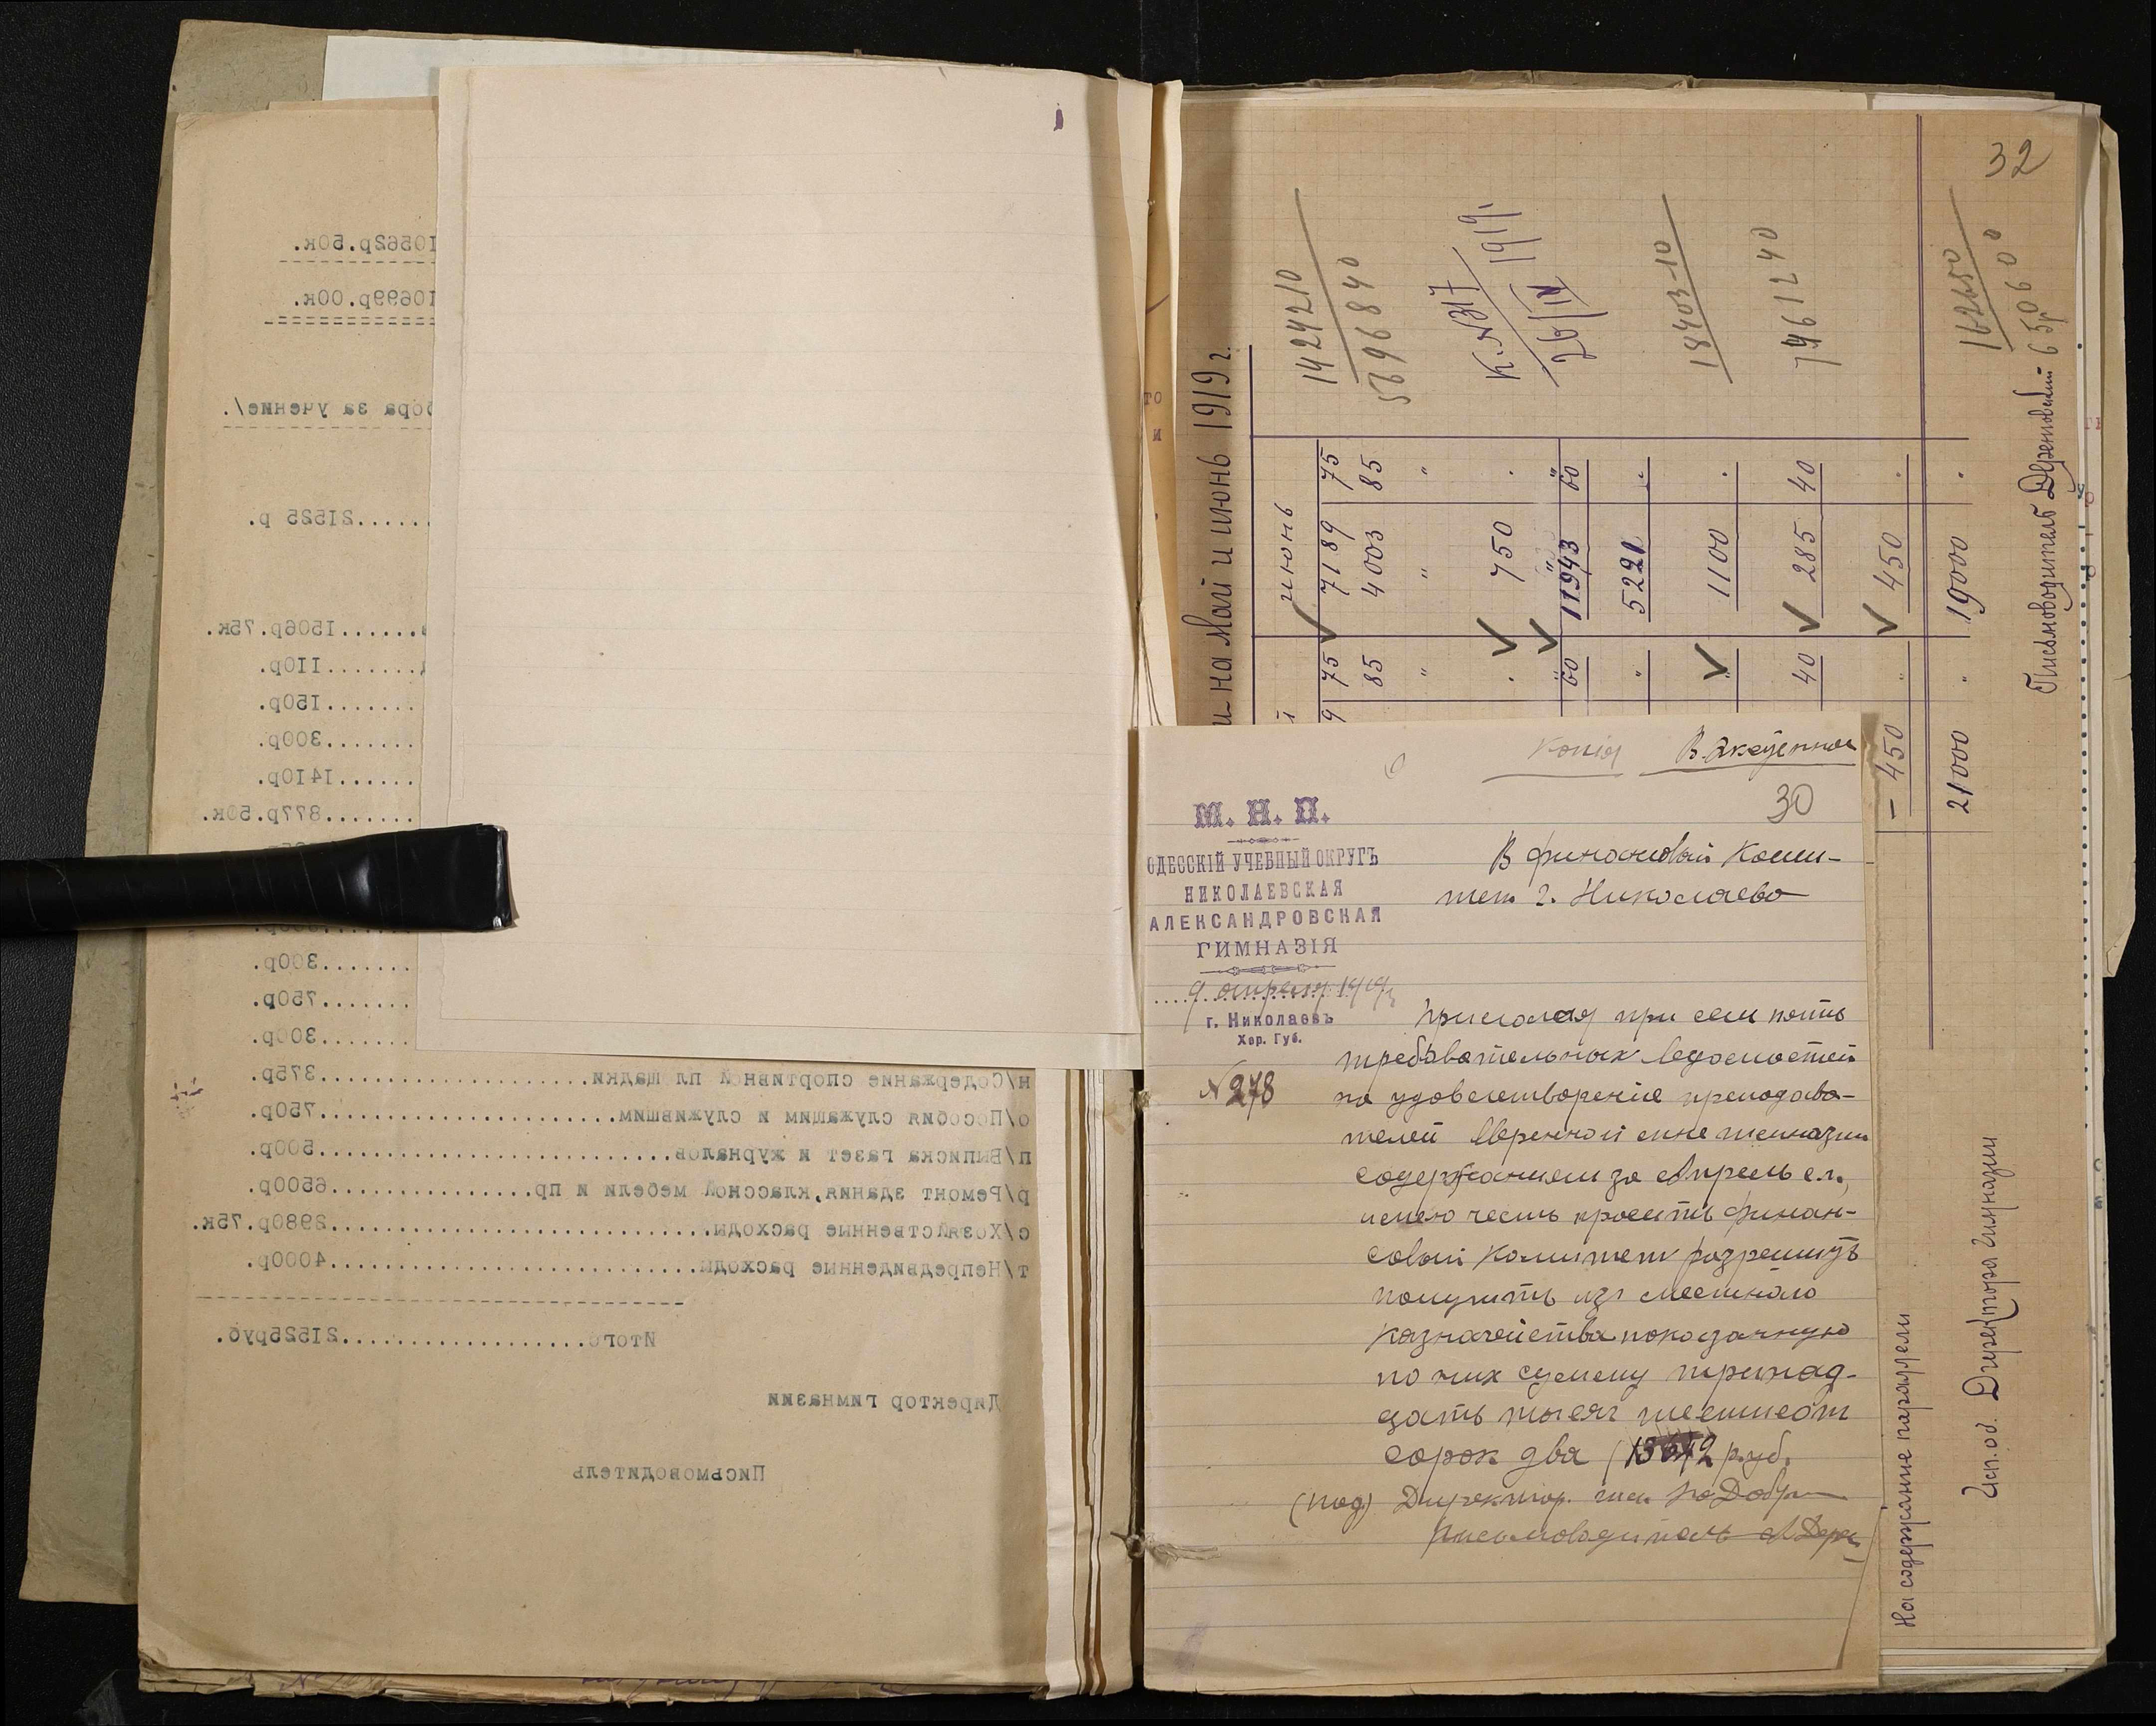 10562р.50к.
10699р.00к.
бора за учение/.
.....21525 р.
.......1506р.75к.
........110р.
.......150р.
.......300р.
......1410р.
.......877р.50к.
.......300р.
.......750р.
.......300р.
н/Содержание спортивной пл щадки.....................375р.
о/Пособия служащим и служившим.....................750р.
п/Выписка газет и журналов...........................500р.
р/Ремонт здания,классной мебели и пр...............6500р.
с/Хозяйственные расходы............................2980р.75к.
т/Непредвиденные расходы...........................4000р.
Итого...................21525руб.
Директор гимназии
Письмоводитель
то
и
32
и на Май и июнь 1919 г.
июнь
75 7189 75
85 4003 85
" " "
. 750 .
60 11943 60
" 5221 .
" 1100 .
40 285 40
- 450 " 450 .
21000 " 19000 .
1424210
5696840
К. №317
26/IV 1919
18403-10
7461240
162650
650600
На содержание параллели
Исп.об. Директора гимназии
Письмоводитель
Копия
30
М. Н. П.
ОДЕССКІЙ УЧЕБНЫЙ ОКРУГЪ
НИКОЛАЕВСКАЯ
АЛЕКСАНДРОВСКАЯ
ГИМНАЗІЯ
9 апреля 1919 г.
г. Николаевъ
Хер. Губ.
№ 278
В финансовый Коми-
тет г. Николаева
Прилагая при сем пять
требовательных ведомостей
на удовлетворение преподава-
телей вверенной мне гимназии
содержанием за Апрель с.г.,
имею честь просить Финан-
совый Комитет разрешить
получить из местного
Казначейства показанную
по них сумму тринад-
цать тысяч шестьсот
сорок два (13642 руб.
(под) Директор гим.
Письмоводитель